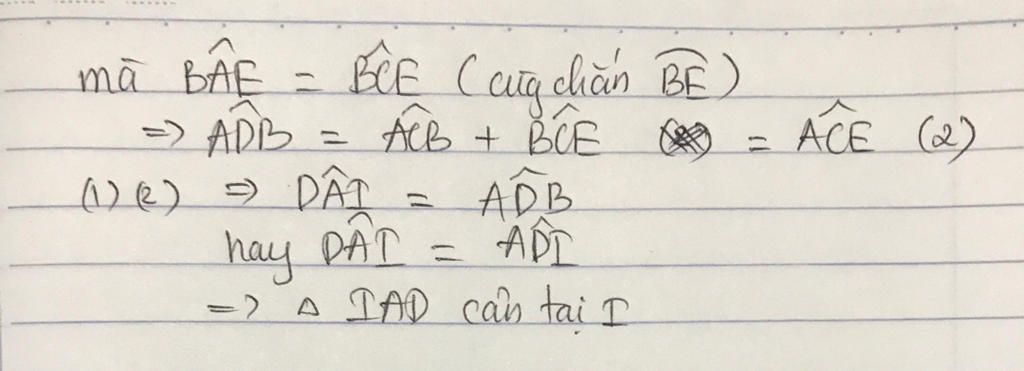 mà BÂE = BĈE (cùg chắn B͡E)
=> AD̂B = AĈB + BĈE = AĈE (2)
(1) (2) => DÂI = AD̂B
hay DÂI = AD̂I
=> △ IAD cân tại I